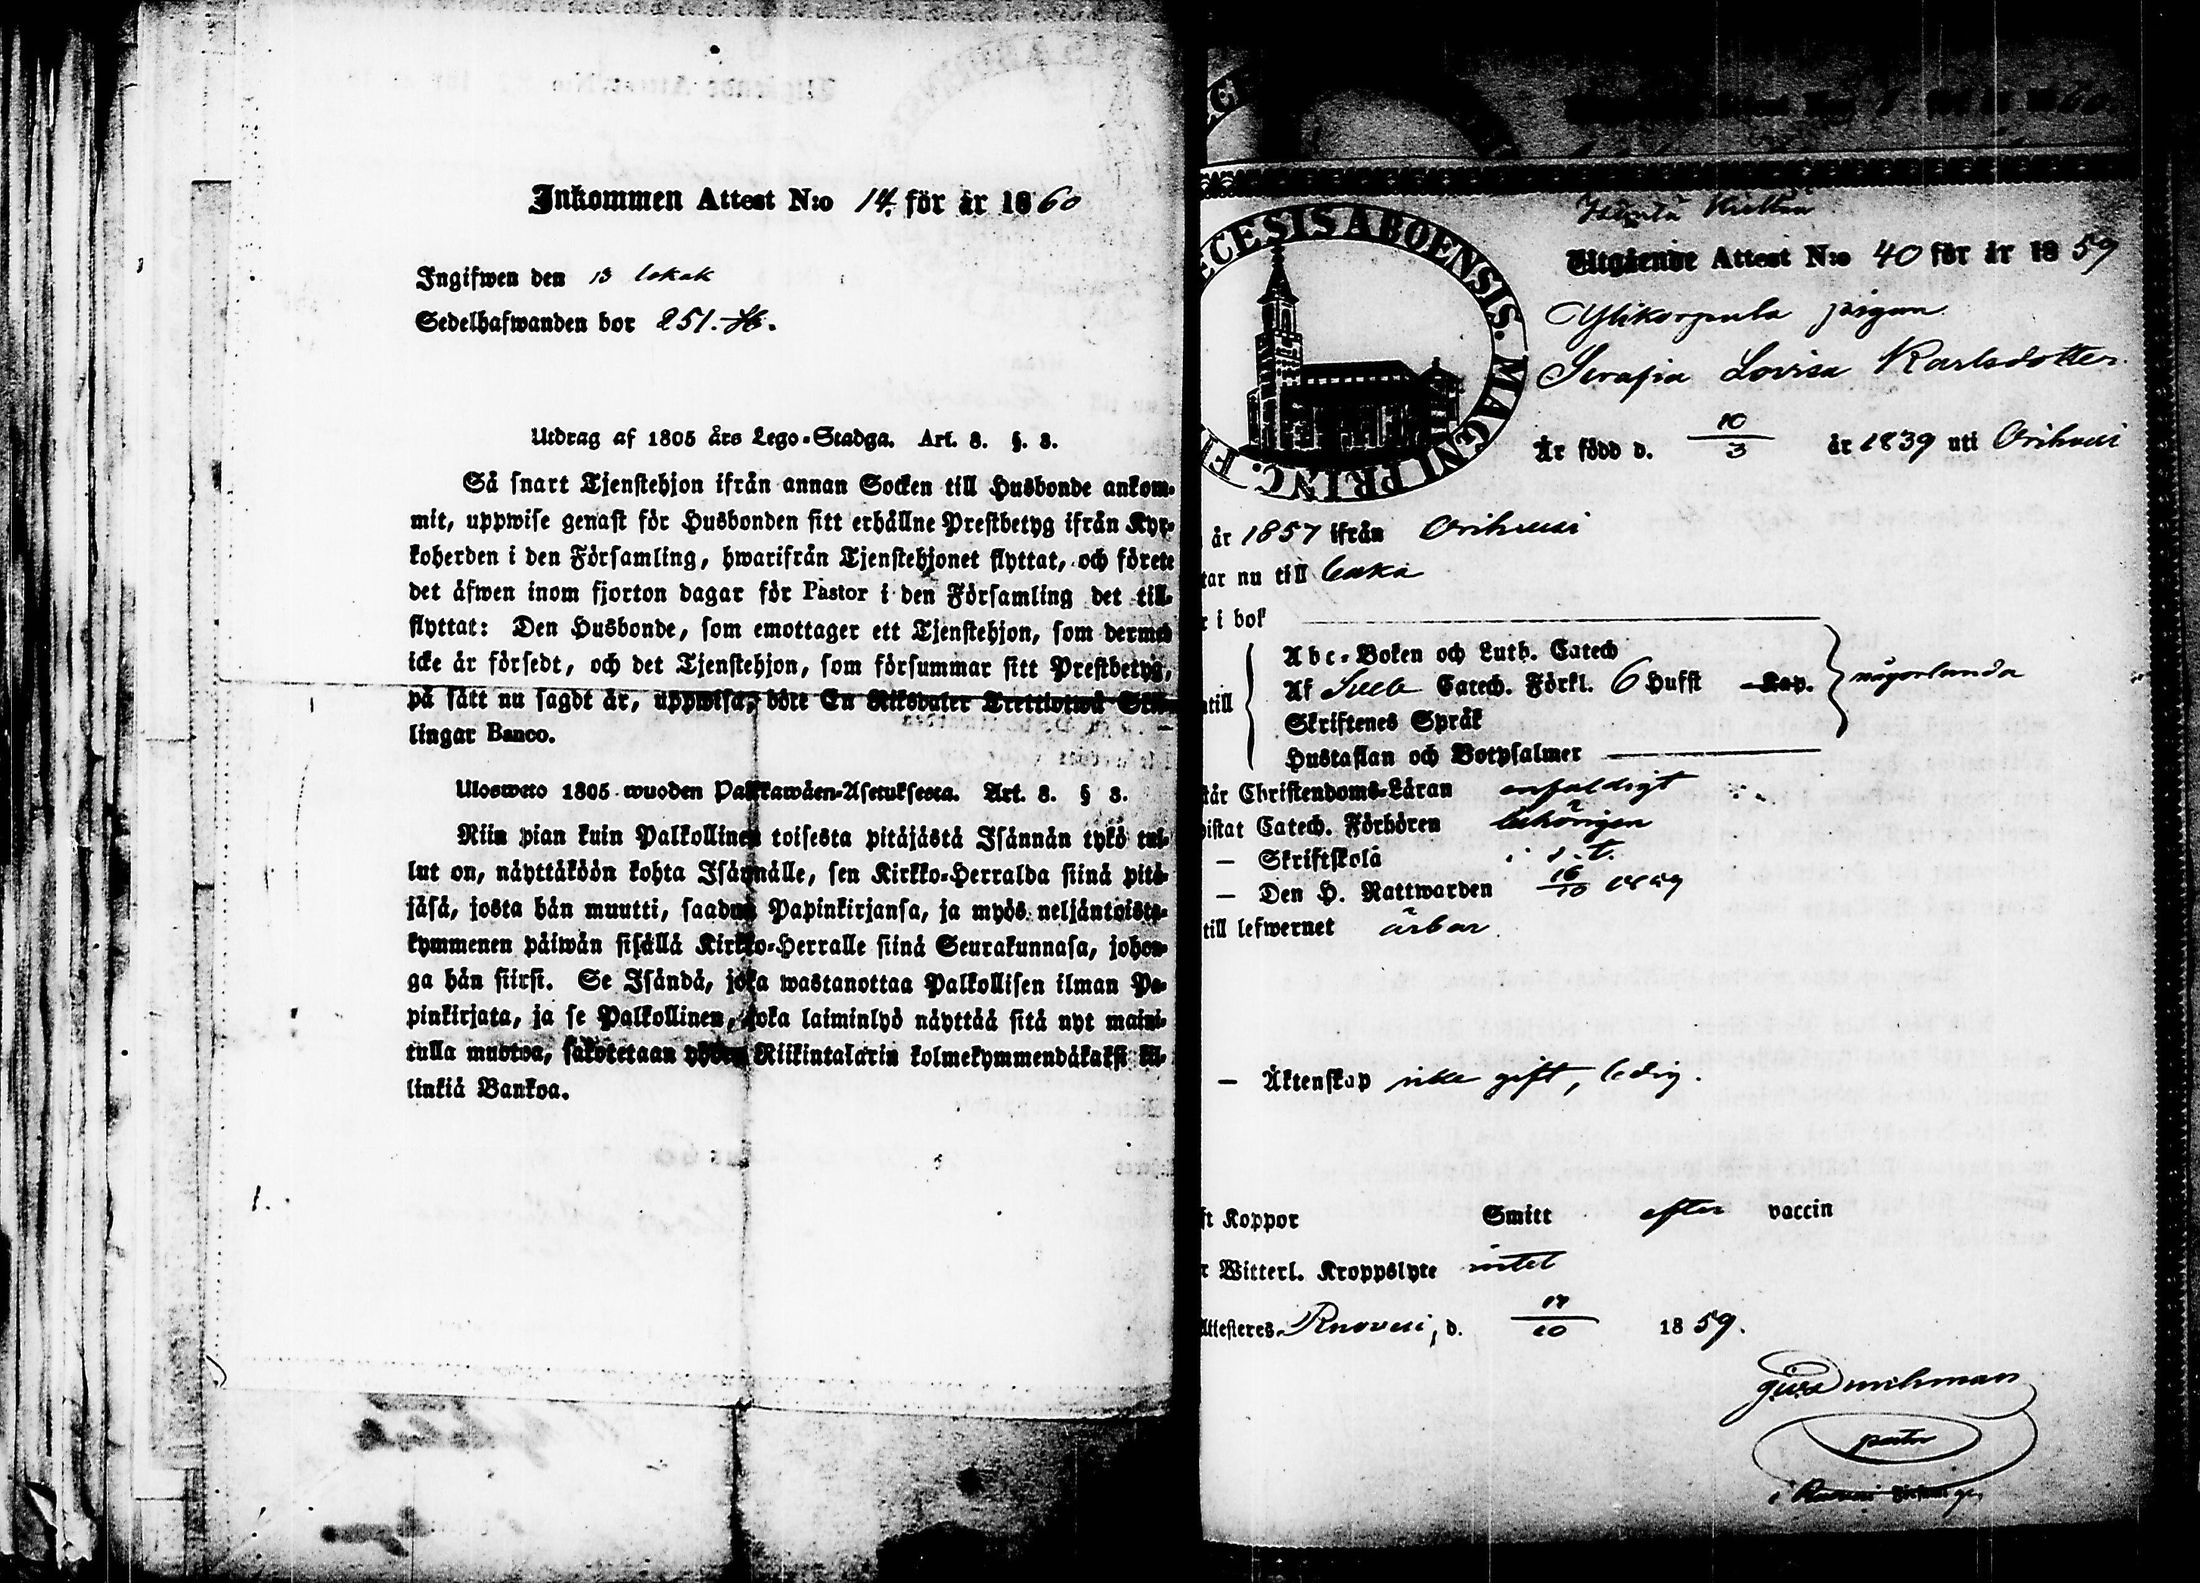 Inkommen Attest N:o 14. för år 1860
Ingifwen den 13 lokak
Sedelhafwanden bor 251.
Utdrag af 1805 års Lego-Stadga. Art. 8. §. 8.
Så snart Tjenstehjon ifrån annan Socken till Husbonde ankom-
mit, uppwise genast för Husbonden sitt erhållne Prestbetyg ifrån Kyr-
koherden i den Församling, hwarifrån Tjenstehjonet flyttat, och förete
det äfwen inom fjorton dagar för Pastor i den Församling det till-
flyttat: Den Husbonde, som emottager ett Tjenstehjon, som dermed
icke är försedt, och det Tjenstehjon, som försummar sitt Prestbetyg,
på sätt nu sagdt är, uppwisa, böte En Riksdaler Trettiotwå Skil-
lingar Banco.
Ulosweto 1805 wuoden Palkkawäen-Asetuksesta. Art. 8. § 8.
Niin pian kuin Palkollinen toisesta pitäjästä Isännän tykö tul-
lut on, näyttäköön kohta Isännälle, sen Kirkko-Herralda siinä pitä-
jäsä, josta hän muutti, saadun Papinkirjansa, ja myös neljäntoista-
kymmenen päiwän sisällä Kirkko-Herralle siinä Seurakunnasa, johon-
ga hän siirsi. Se Isändä, joka wastanottaa Palkollisen ilman Pa-
pinkirjata, ja se Palkollinen, joka laiminlyö näyttää sitä nyt maini-
tulla muotoa, sakotetaan yhden Riikintalarin kolmekymmendäkaksi kil-
linkiä Bankoa.
1.
ECESIS ABOENSIS. MAGNI PRINC. F
Utgående Attest N:o 40 för år 1859
Ylikorpula pigan
Serafia Lovisa Karlsdotter
Är född d. 10/3 år 1839 uti Orihvesi
år 1857 ifrån Orihvesi
tar nu till
r i bok
ntill
Abc-Boken och Luth. Catech
Af Sveb Catech. Förkl. 6 Hufst Kap.
Skriftenes Språk
Hustaflan och Botpsalmer
någorlunda
står Christendoms-Läran enfaldigt
vistat Catech. Förhören behörigen
— Skriftskola i s. t.
— Den H. Nattwarden 16/10 1859
till lefwernet ärbar
— Äktenskap icke gift, ledig.
ft Koppor Smitt efter vaccin
r Witterl. Kroppslyte intet
Attesteres Ruovesi, d. 17/10 1859.
pastor
i Ruovesi Församlge,